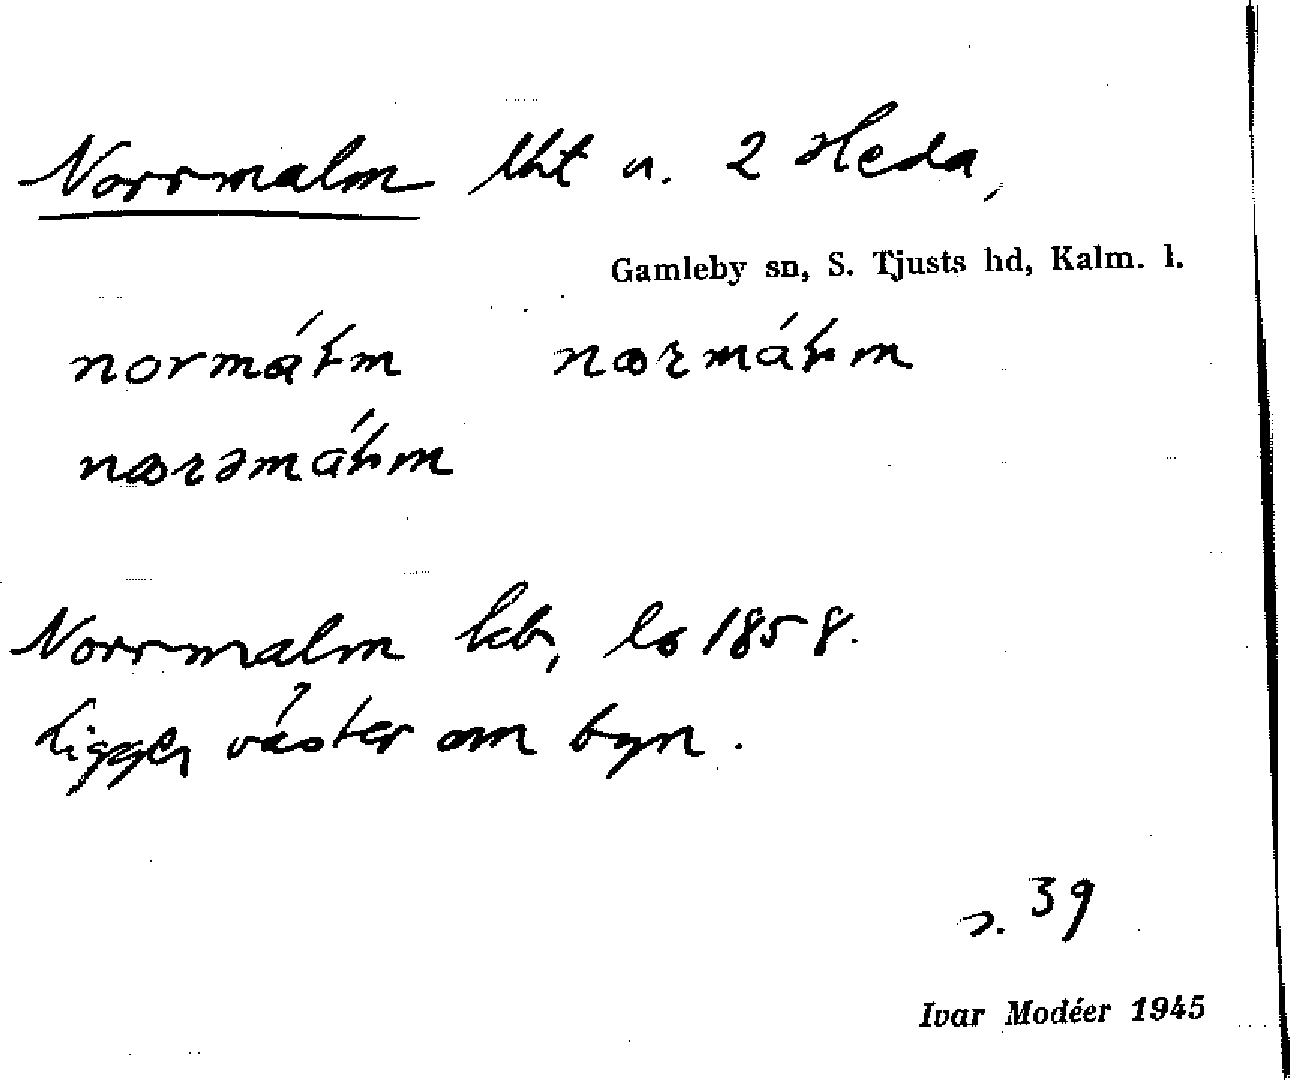 Norrmalm lht u. 2 Heda,
Gamleby sn, S. Tjusts hd, Kalm. l.
normáƚm nꝏrmáƚm
nꝏrəmáƚm
Norrmalm kb, ls 1858.
Ligger väster om byn.
s. 39
Ivar Modéer 1945